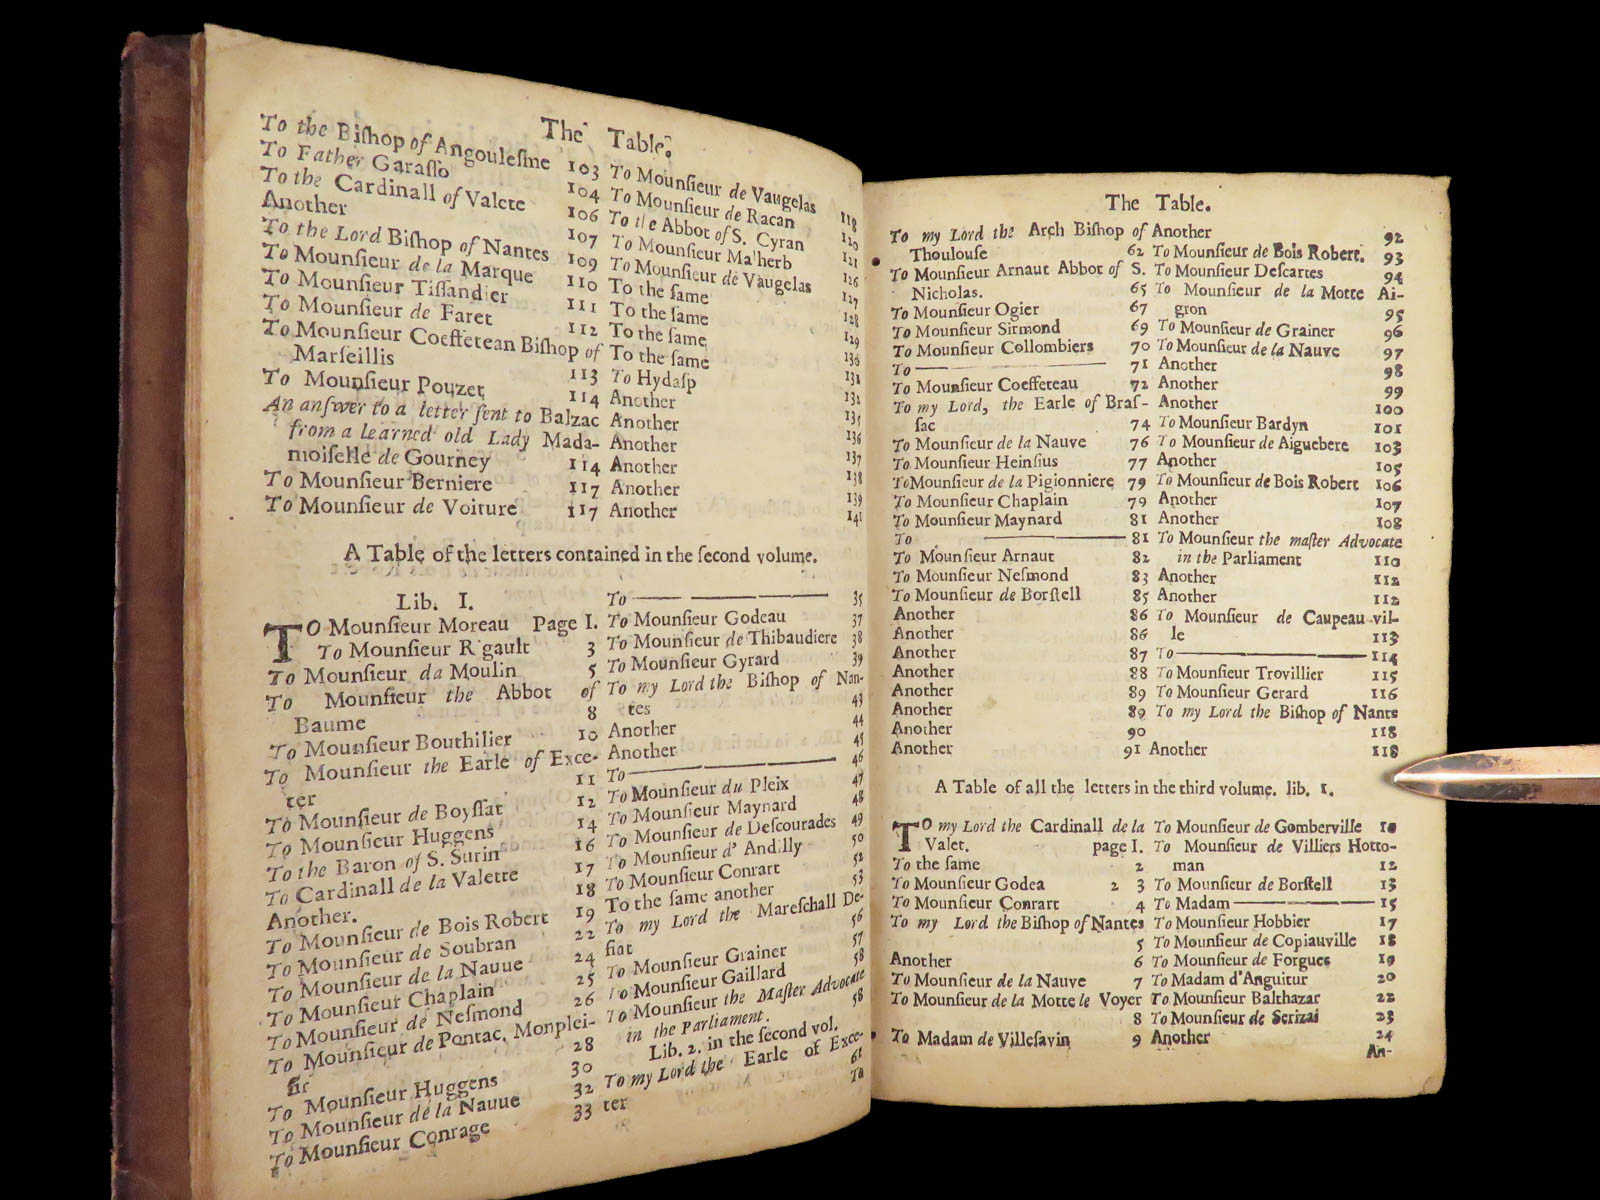 The Table.
To the Biſhop of Angouleſme 103
To Father Garaſſo 104
To the Cardinall of Valete 106
Another 107
To the Lord Biſhop of Nantes 109
To Mounſieur de la Marque 110
To Mounſieur Tiſſandier 111
To Mounſieur de Faret 112
To Mounſieur Coeffetean Biſhop of
Marſeillis 113
To Mounſieur Pouzet 114
An anſwer to a letter ſent to Balzac
from a learned old Lady Mada-
moiſelle de Gourney 114
To Mounſieur Berniere 117
To Mounſieur de Voiture 117
To Mounſieur de Vaugelas 119
To Mounſieur de Racan 120
To the Abbot of S. Cyran 121
To Mounſieur Malherb 126
To Mounſieur de Vaugelas 127
To the ſame 128
To the ſame 129
To the ſame 130
To the ſame 131
To Hydaſp 132
Another 135
Another 136
Another 137
Another 138
Another 139
Another 141
A Table of the letters contained in the ſecond volume.
Lib. I.
TO Mounſieur Moreau Page I.
To Mounſieur R gault 3
To Mounſieur da Moulin 5
To Mounſieur the Abbot of
Baume 8
To Mounſieur Bouthilier 10
To Mounſieur the Earle of Exce-
ter 11
To Mounſieur de Boyſſat 12
To Mounſieur Huggens 14
To the Baron of S. Surin 16
To Cardinall de la Valette 17
Another. 18
To Mounſieur de Bois Robert 19
To Mounſieur de Soubran 22
To Mounſieur de la Nauue 24
To Mounſieur Chaplain 25
To Mounſieur de Neſmond 26
To Mounſieur de Pontac, Monplei-
ſir 28
To Mounſieur Huggens 30
To Mounſieur de la Nauue 32
To Mounſieur Conrage 33
To 35
To Mounſieur Godeau 37
To Mounſieur de Thibaudiere 38
To Mounſieur Gyrard 39
To my Lord the Biſhop of Nan-
tes 43
Another 44
Another 45
To 46
To Mounſieur du Pleix 47
To Mounſieur Maynard 48
To Mounſieur de Deſcourades 49
To Mounſieur d' Andilly 50
To Mounſieur Conrart 52
To the ſame another 53
To my Lord the Mareſchall De-
fiat 56
To Mounſieur Grainer 57
To Mounſieur Gaillard 58
To Mounſieur the Maſter Advocate
in the Parliament. 58
Lib. 2. in the ſecond vol.
To my Lord the Earle of Exce-
ter 61
To
The Table.
To my Lord the Arch Biſhop of
Thoulouſe 62
To Mounſieur Arnaut Abbot of S.
Nicholas. 65
To Mounſieur Ogier 67
To Mounſieur Sirmond 69
To Mounſieur Collombiers 70
To 71
To Mounſieur Coeffeteau 72
To my Lord, the Earle of Braſ-
ſac 74
To Mounſieur de la Nauve 76
To Mounſieur Heinſius 77
To Mounſieur de la Pigionniere 79
To Mounſieur Chaplain 79
To Mounſieur Maynard 81
To 81
To Mounſieur Arnaut 82
To Mounſieur Neſmond 83
To Mounſieur de Borſtell 85
Another 86
Another 86
Another 87
Another 88
Another 89
Another 89
Another 90
Another 91
Another 92
To Mounſieur de Bois Robert. 93
To Mounſieur Deſcartes 94
To Mounſieur de la Motte Ai-
gron 95
To Mounſieur de Grainer 96
To Mounſieur de la Nauve 97
Another 98
Another 99
Another 100
To Mounſieur Bardyn 101
To Mounſieur de Aiguebere 103
Another 105
To Mounſieur de Bois Robert 106
Another 107
Another 108
To Mounſieur the maſter Advocate
in the Parliament 110
Another 112
Another 112
To Mounſieur de Caupeau vil-
le 113
To 114
To Mounſieur Trovillier 115
To Mounſieur Gerard 116
To my Lord the Biſhop of Nants
118
Another 118
A Table of all the letters in the third volume. lib. 1.
TO my Lord the Cardinall de la
Valet. page I.
To the ſame 2
To Mounſieur Godea 2 3
To Mounſieur Conrart 4
To my Lord the Biſhop of Nantes
5
Another 6
To Mounſieur de la Nauve 7
To Mounſieur de la Motte le Voyer
8
To Madam de Villeſavin 9
To Mounſieur de Gomberville 10
To Mounſieur de Villiers Hotto-
man 12
To Mounſieur de Borſtell 13
To Madam 15
To Mounſieur Hobbier 17
To Mounſieur de Copiauville 18
To Mounſieur de Forgues 19
To Madam d'Anguitur 20
To Mounſieur Balthazar 22
To Mounſieur de Serizai 23
Another 24
An-